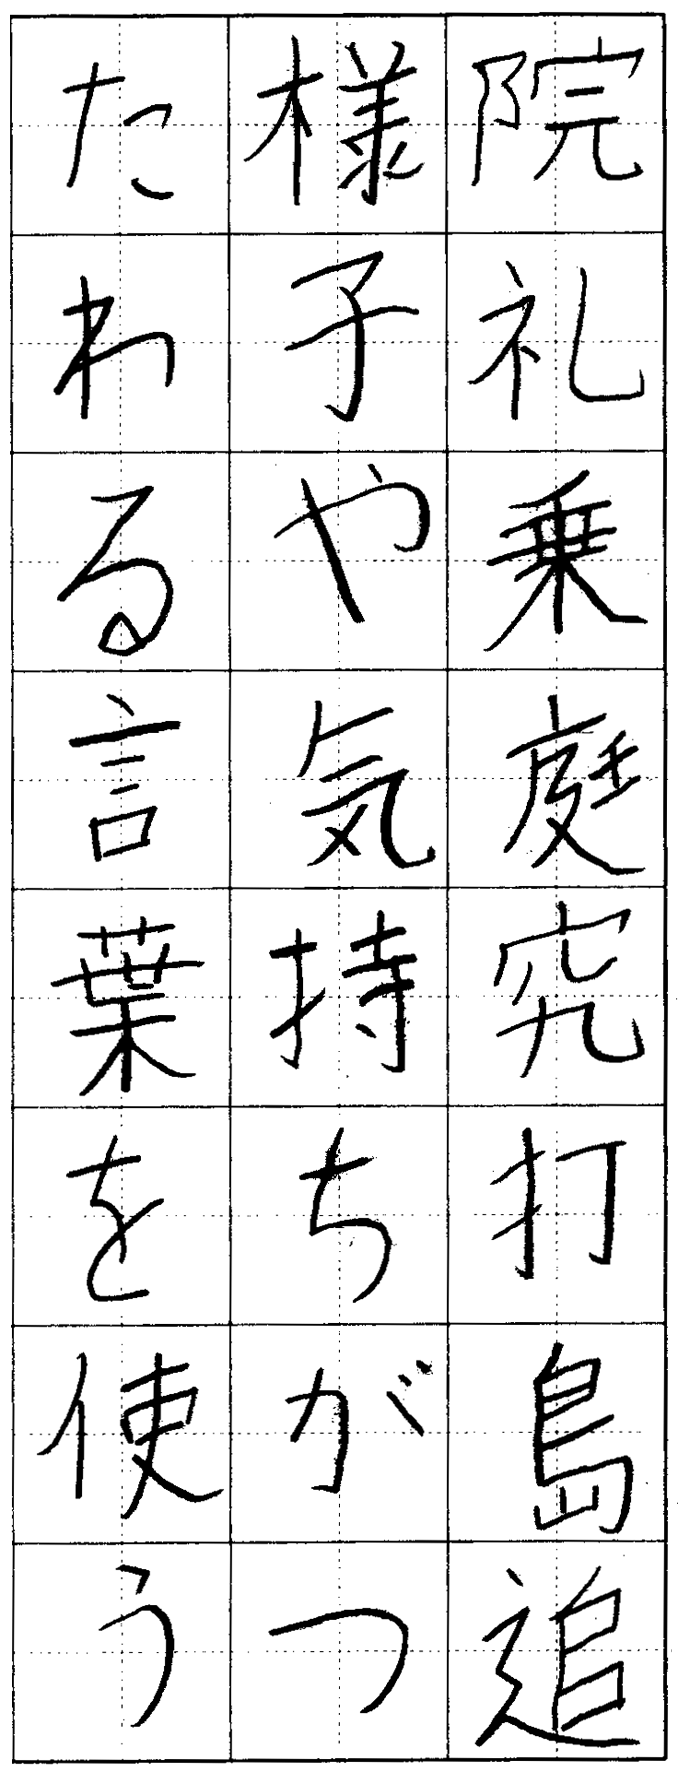 院礼乗庭究打島追
様子や気持ちがつ
たわる言葉を使う